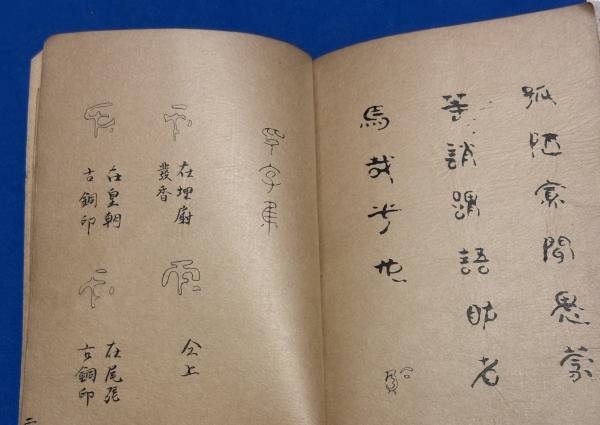 孤陋寡聞愚蒙
等誚謂語助者
焉哉乎也
字集
在埋廚
發香
仝上
在皇朝
古銅印
在尾張
古銅印
二